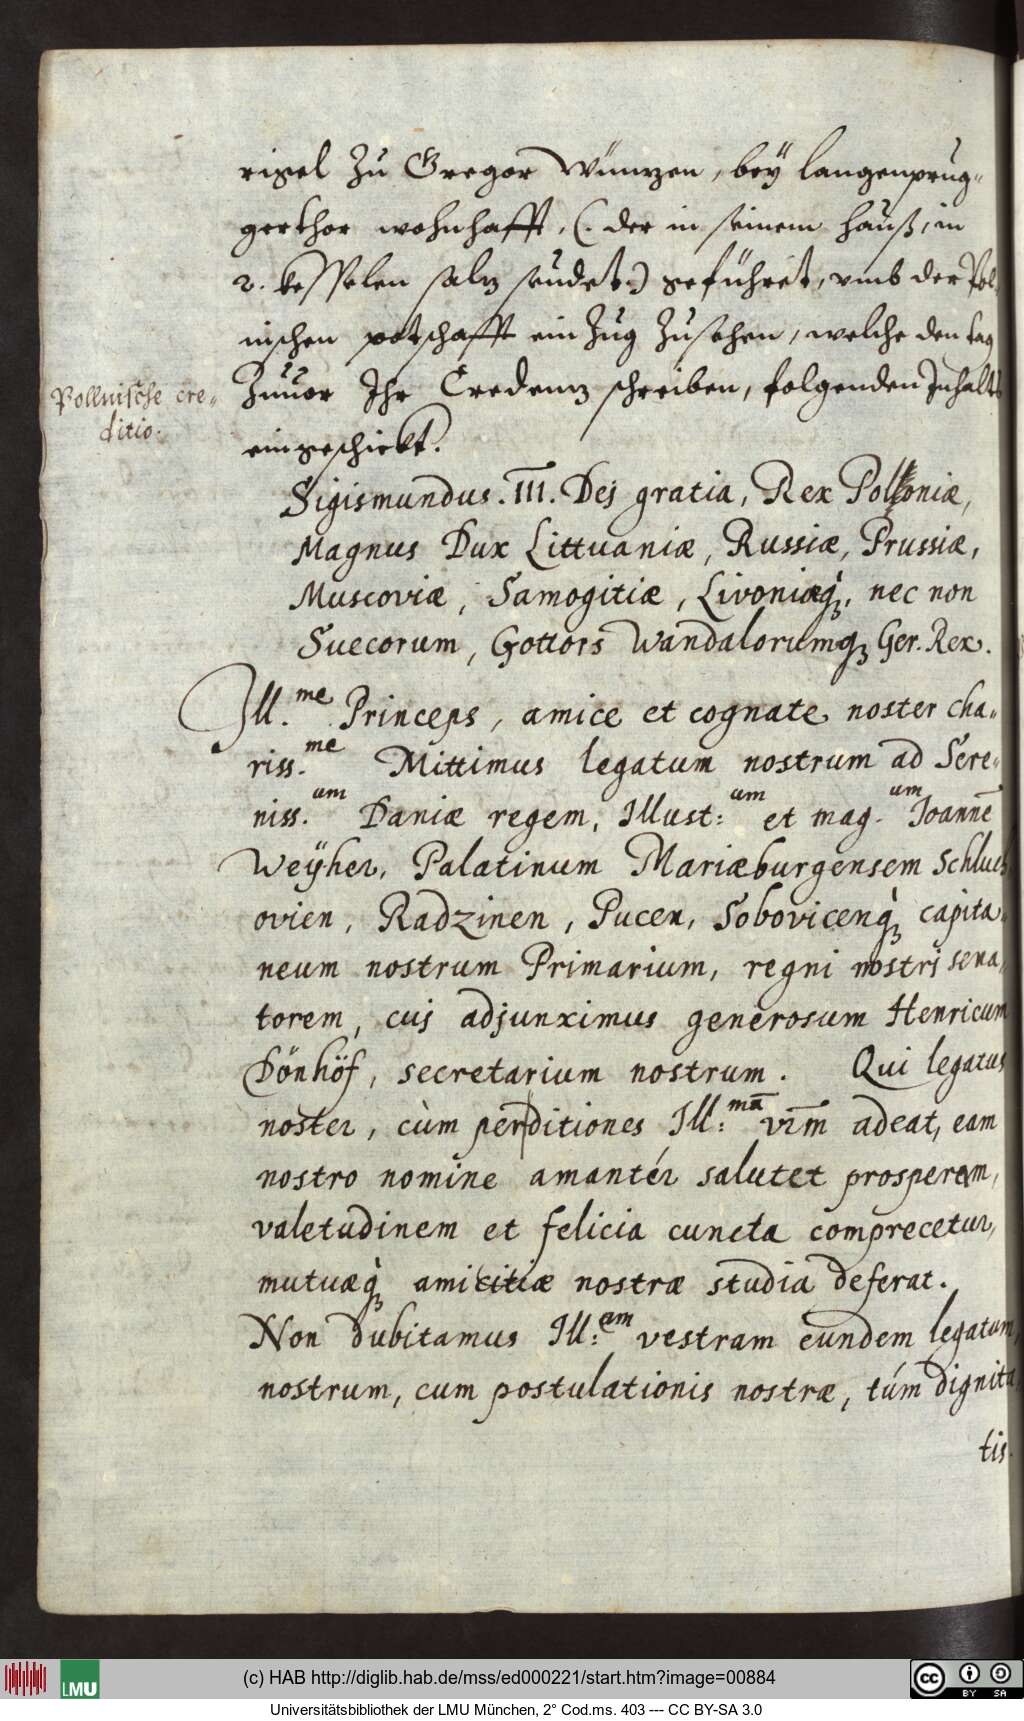 risel zu Gregor Wünzen, bey langenprug-
gerthor wohnhafft, (. der in seinem hauß, in
2. kesselen saltz seudet.) geführet, vmb der Pol-
nischen potschafft ein Zug Zusehen, welche den tag
Zuuor Ihr Credentz schreiben, folgenden Inhalts
eingeschickt.
Pollnische cre-
ditio.
Sigismundus. III. Dej gratia, Rex Poloniæ,
Magnus Dux Littuaniæ, Russiæ, Prussiæ,
Muscoviæ, Samogitiæ, Livoniæq;, nec non
Suecorum, Gottors Wandalorumq; Ger. Rex.
Ill.me Princeps, amice et cognate noster cha-
riss.me Mittimus legatum nostrum ad Sere-
niss.um Daniæ regem, Illust:um et mag.um Joannē
Weÿher, Palatinum Mariæburgensem Schluch
ovien, Radzinen, Pucen, Sobovicenq; capita-
neum nostrum Primarium, regni nostrj sena-
torem, cuj adjunximus generosum Henricum
Dönhöf, secretarium nostrum. Qui legatus
noster, cùm perditiones Ill:mā vr̄m adeat, eam
nostro nomine amantér salutet prosperam,
valetudinem et felicia cuncta comprecetur,
mutuæq; amicitiæ nostræ studia deferat.
Non dubitamus Ill:am vestram eundem legatum
nostrum, cum postulationis nostræ, túm dignita
tis.
(c) HAB http://diglib.hab.de/mss/ed000221/start.htm?image=00884
LMU
Universitätsbibliothek der LMU München, 2° Cod.ms. 403 --- CC BY-SA 3.0
cc BY SA